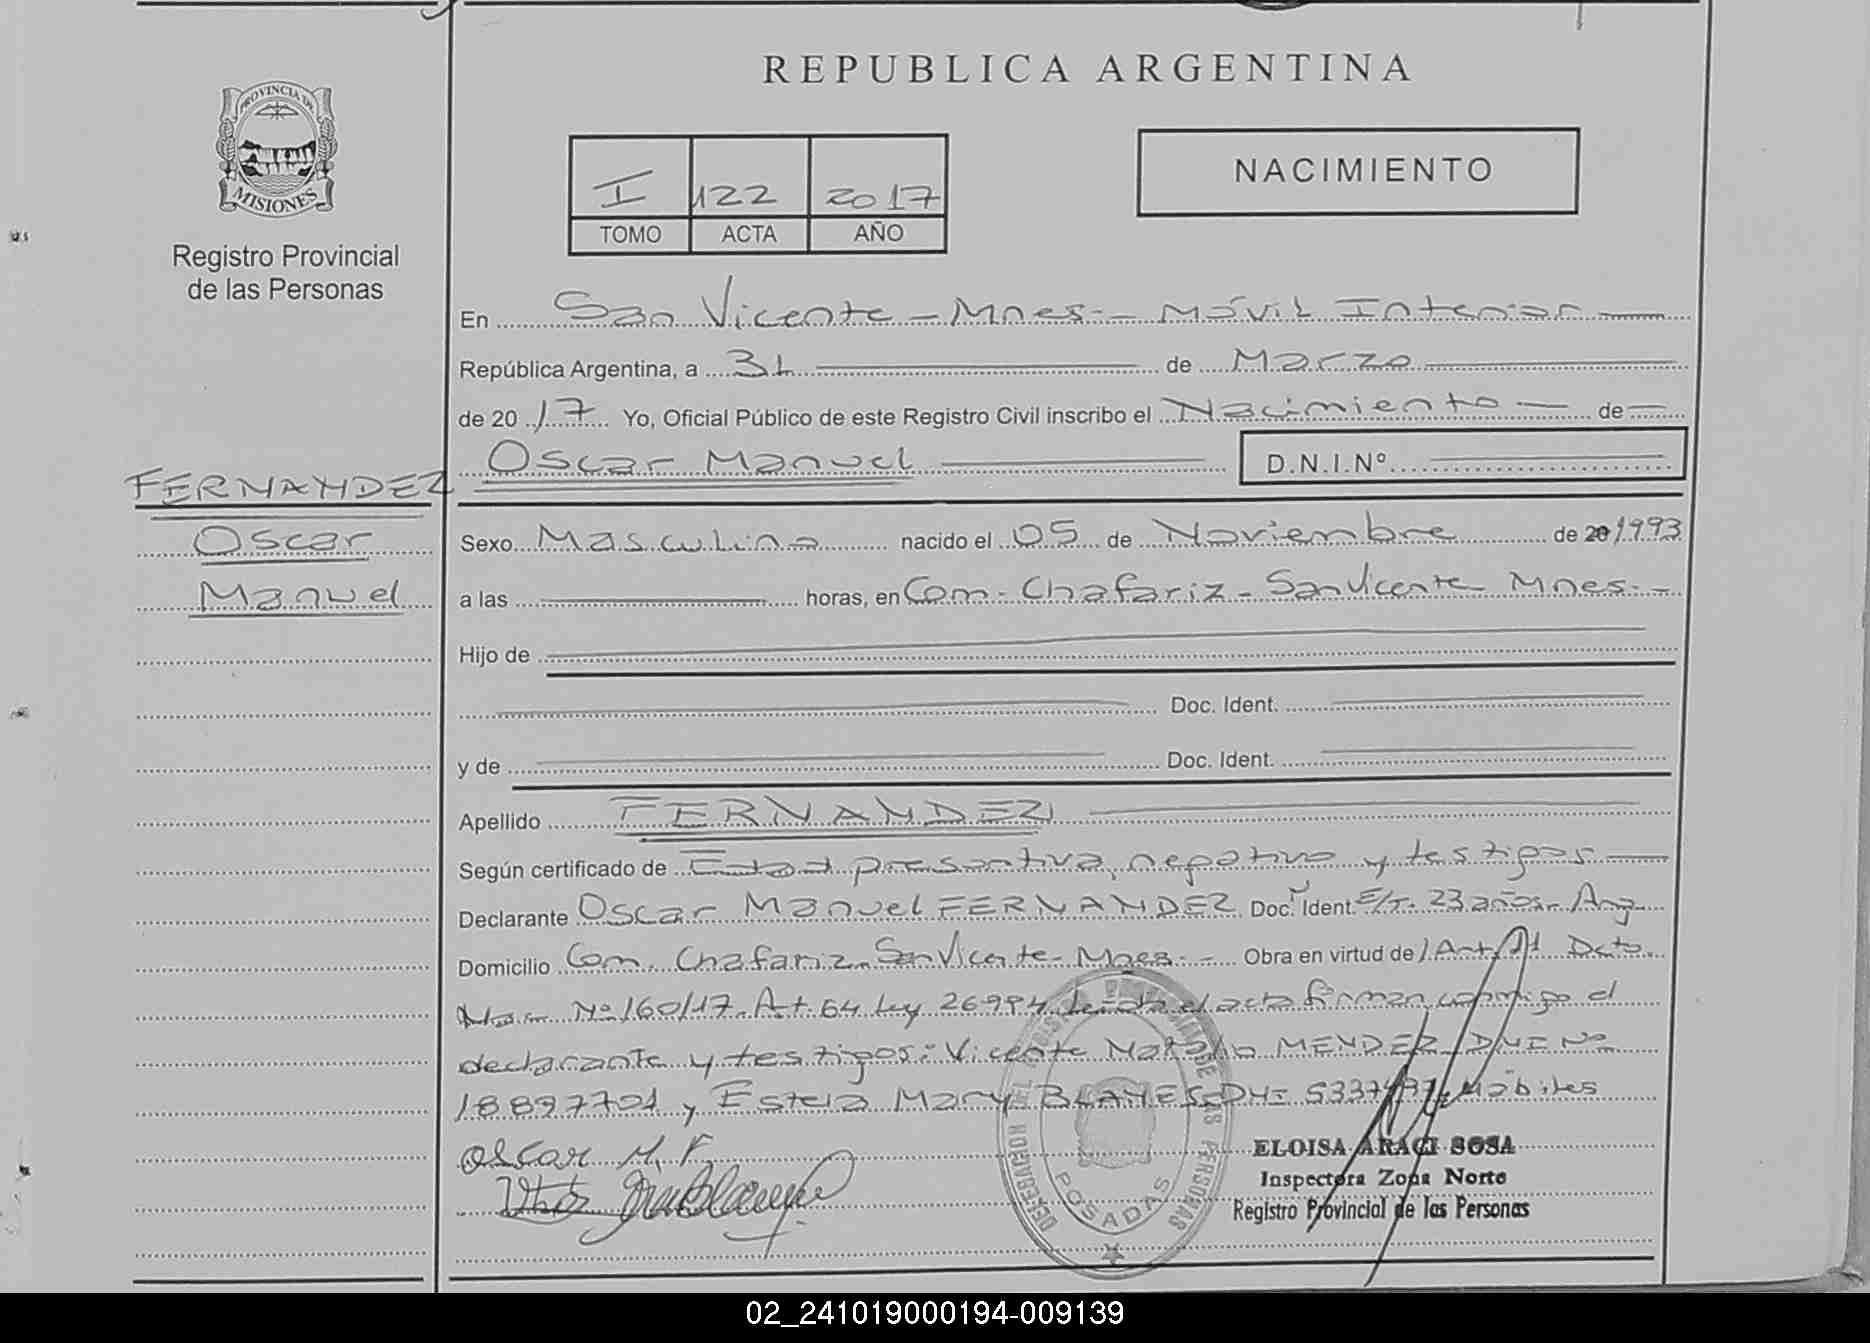 REPUBLICA ARGENTINA
PROVINCIA DE
MISIONES
Registro Provincial
de las Personas
I 122 2017
TOMO ACTA AÑO
NACIMIENTO
En San Vicente - Mnes:- Móvil Interior
República Argentina, a 31 de Marzo
de 20 17 Yo, Oficial Público de este Registro Civil inscribo el Nacimiento - de -
Oscar Manuel D.N.I.Nº
FERNANDEZ
Oscar
Manuel
Sexo Masculino nacido el 05 de Noviembre de 20 1993
a las horas, en Com. Chafariz - San Vicente Mnes:-
Hijo de
Doc. Ident.
y de Doc. Ident.
Apellido FERNANDEZ
Según certificado de Edad presuntiva, negativo y testigos
Declarante Oscar Manuel FERNANDEZ Doc. Ident. E/T. 23 años. Arg
Domicilio Com. Chafariz San Vicente - Mnes - Obra en virtud de Art. Dcto.
Nº 160/17. Art. 64 Ley 26994 Leída el acta firman conmigo el
declarante y testigos: Vicente MENDEZ DNI Nº
18897701 y Estela Mary BLANES DNI Móbiles
Oscar M. F.
DELEGACION DEL REGISTRO PROVINCIAL DE LAS PERSONAS
POSADAS
ELOISA ARACI SOSA
Inspectora Zona Norte
Registro Provincial de las Personas
02_241019000194-009139